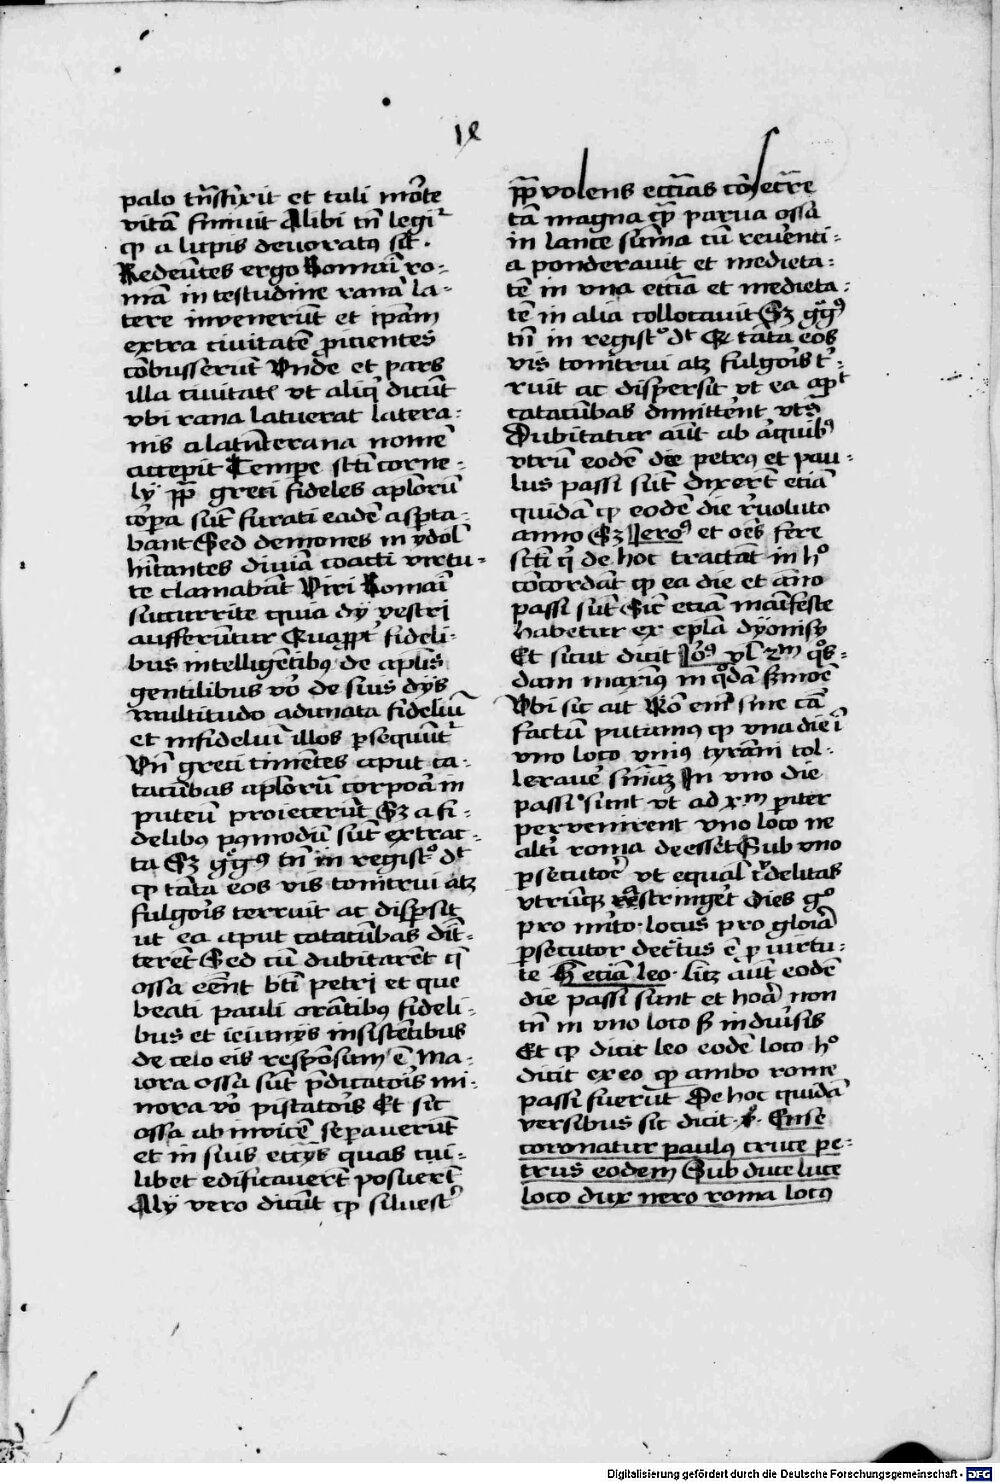 ix
palo tn̄sfixit et tali mōte
vitā finivit Alibi tn̄ legit᷑
qꝫ a lupis devoratꝰ sit .
Redeūtes ergo Romani ro-
mā in testudine ranā la-
tere invenerūt et ip̄am
extra civitatē proicientes
cōbusserūt Unde et pars
illa civitatꝭ vt aliqͥ dicūt
vbi rana latuerat latera-
nis a latente rana nomē
accepit Tempe scti corne-
ly pp̄ greci fideles aplorū
corpa sūt furati eadē aspta-
bant Sed demones in ydolꝭ
hītantes divīa coacti virtu-
te clamabāt Viri Romani
succurrite quia dy vestri
aufferūtur Quapp̄t fideli-
bus intelligētibꝰ de apl̄is
gentilibus vº de suis dys
multitudo adunata fideliū
et infideliū illos p̱sequūt᷑
Vn̄ greci timētes aput ca-
tacūbas aplorū corpoꝝ in
puteū proiecerūt Sꝫ a fi-
delibꝰ pꝰmodū sūt extrac-
ta Sꝫ gͤgꝰ tn̄ in registº dt
qꝫ tāta eos vis tonitrui atꝫ
fulgoꝭs terruit ac disp̱sit
ut ea aput catacūbas dim̄t-
terēt Sed cū dubitarēt q̄
ossa eēnt bti petri et que
beati pauli orātibꝰ fideli-
bus et ieiunys insistētibus
de celo eis respōsum ē Ma-
iora ossa sūt p̄dicatoꝭs mi-
nora vº piscatoꝭs Et sic
ossa ab invicē sep̱averūt
et in suis ecctys quas cui-
libet edificauerūt posuerūt
Aly vero dicūt qꝫ silvestꝰ
pp̄ volens ecctias cōsecr̄re
tā magna qꝫ parva ossa
in lance sum̄a cū reverēti-
a ponderavit et medieta-
tē in vna ecctia et medieta-
tē in alia collocavit Sꝫ gͤgꝰ
tn̄ in registº dt Qꝫ tāta eos
vis tonitrui atꝫ fulgoꝭs t᷑-
ruit ac dispersit vt ea ap̱t
catacūbas dimittēnt vts̄
Dubitatur aūt ab aͥquibꝰ
vtrū eodē die petrꝰ et pau-
lus passi sūt dixerūt etiā
quidā qꝫ eodē die rͤvoluto
anno Sꝫ Jeroꝰ et oēs fere
scti qͥ de hoc tractāt in hº
cōcordāt qꝫ ea die et āno
passi sūt Sic etiā manifeste
habetur ex epl̄a dyonisy
Et sicut dicit Joꝰ vl̄ 2m qͦs-
dam maxīꝰ in qͣdā s̄mōe
Vbi sic ait Nō em̄ sine cā
factū putamus qꝫ vna die ī
vno loco vniꝰ tyrāni tol-
leravē sn̄iāꝫ In vno die
passi sunt vt ad xm̄ p̱iter
pervenirent vno loco ne
alt᷑i roma deesset Sub vno
p̱secutoē vt equalꝭ crͥdelitas
vtrūqꝫ  stringēt Dies gº
pro mīto · locus pro gloiā
p̱secutor dectus ē p̱ virtu-
te H̄ etiā leo · Licꝫ aūt eodē
die passi sunt et hoā non
tn̄ in vno loco sꝫ in div᷑sis
Et qꝫ dicit leo eodē loco hº
dicit ex eo qꝫ ambo rome
passi fuerūt De hoc quidā
versibus sic dicit · v̄ · Ense
coronatur paulꝰ cruce pe-
trus eodem Sub duce luce
loco dux nero roma locꝰ
Digitalisierung gefördert durch die Deutsche Forschungsgemeinschaft - DFG